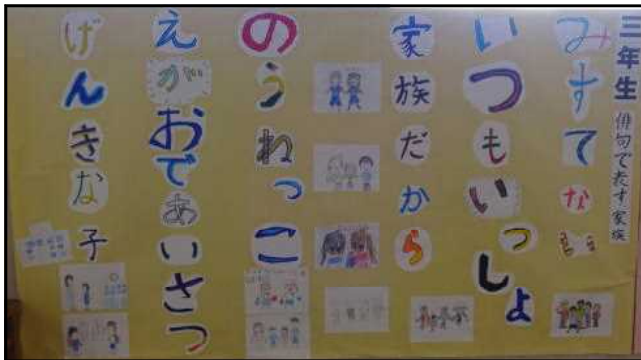 三年生 俳句で表す家族
みすてない
いつもいっしょ
家族だから
のうねっこ
えがおであいさつ
げんきな子